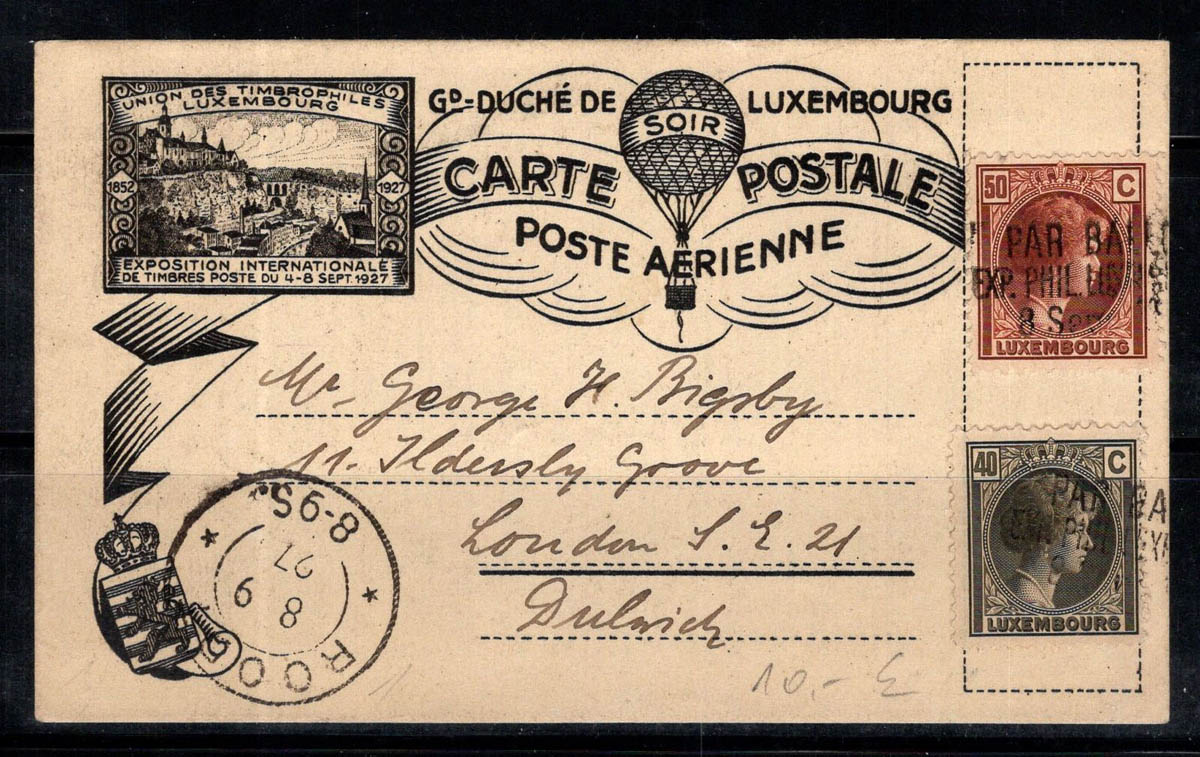 UNION DES TIMBROPHILES
LUXEMBOURG
1852
1927
EXPOSITION INTERNATIONALE
DE TIMBRES POSTE DU 4-8 SEPT 1927
GD-DUCHÉ DE LUXEMBOURG
SOIR
CARTE POSTALE
POSTE AÉRIENNE
50 C
PAR BALL
EXP. PHIL.
8 SEPT
LUXEMBOURG
Mr George H. Bigsby
11. Ildersly Grove
London S.E. 21
Dulwich
40 C
PAR BA
LUXEMBOURG
8-9S.
27
8 9
ROO
10.-